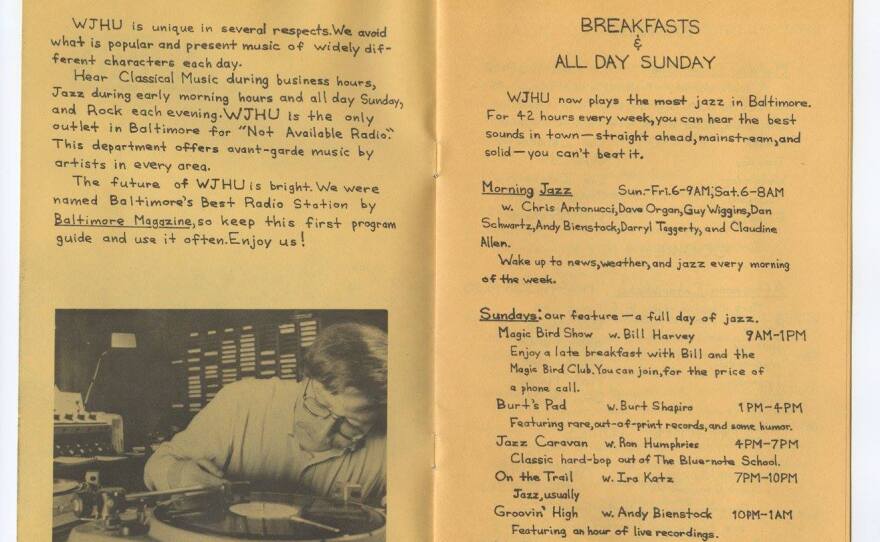 WJHU is unique in several respects. We avoid
what is popular and present music of widely dif-
ferent characters each day.
Hear Classical Music during business hours,
Jazz during early morning hours and all day Sunday,
and Rock each evening. WJHU is the only
outlet in Baltimore for "Not Available Radio."
This department offers avant-garde music by
artists in every area.
The future of WJHU is bright. We were
named Baltimore's Best Radio Station by
Baltimore Magazine, so keep this first program
guide and use it often. Enjoy us!
BREAKFASTS
&
ALL DAY SUNDAY
WJHU now plays the most jazz in Baltimore.
For 42 hours every week, you can hear the best
sounds in town—straight ahead, mainstream, and
solid—you can't beat it.
Morning Jazz Sun.-Fri. 6-9AM; Sat. 6-8AM
w. Chris Antonucci, Dave Organ, Guy Wiggins, Dan
Schwartz, Andy Bienstock, Darryl Taggerty, and Claudine
Allen.
Wake up to news, weather, and jazz every morning
of the week.
Sundays: our feature—a full day of jazz.
Magic Bird Show w. Bill Harvey 9AM-1PM
Enjoy a late breakfast with Bill and the
Magic Bird Club. You can join, for the price of
a phone call.
Burt's Pad w. Burt Shapiro 1PM-4PM
Featuring rare, out-of-print records, and some humor.
Jazz Caravan w. Ron Humphries 4PM-7PM
Classic hard-bop out of The Blue-note School.
On the Trail w. Ira Katz 7PM-10PM
Jazz, usually
Groovin' High w. Andy Bienstock 10PM-1AM
Featuring an hour of live recordings.